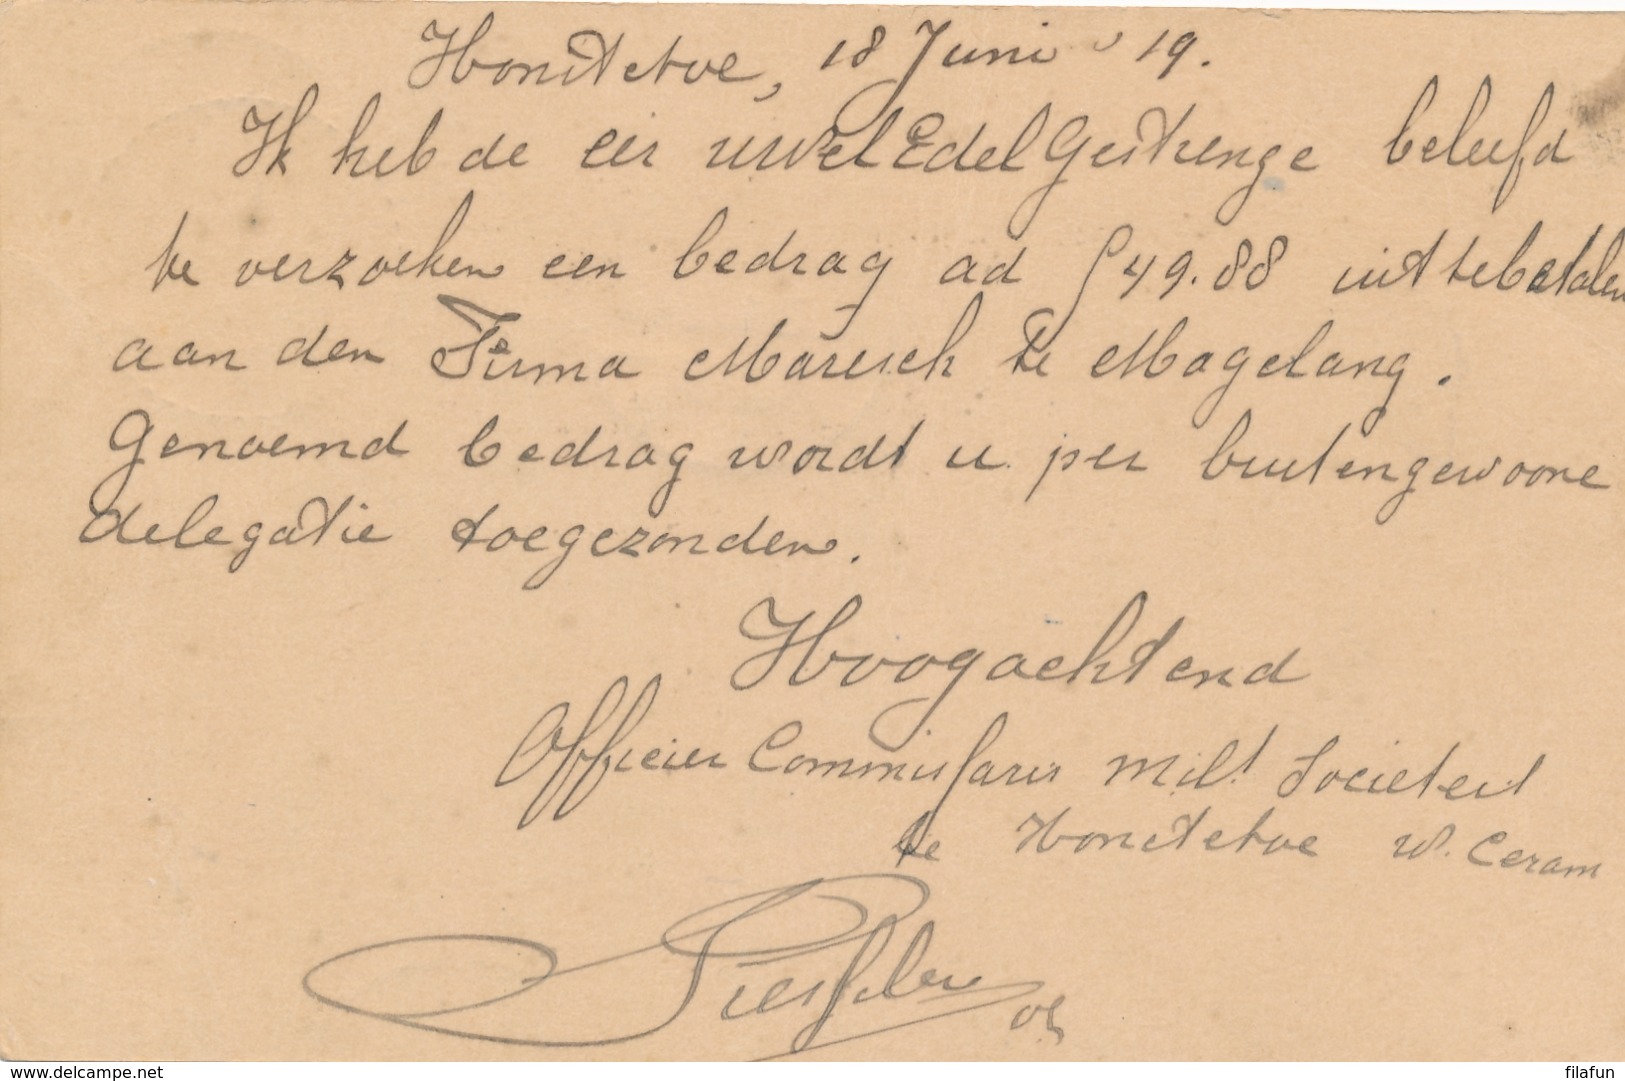 Honitetoe, 18 Juni '19.
Ik heb de eer uwelEdelGestrenge beleefd
te verzoeken een bedrag ad ƒ 49.88 uit te betalen
aan den Firma Maresch te Magelang.
Genoemd bedrag wordt u per buitengewoone
delegatie toegezonden.
Hoogachtend
Officier Commissaris Milt Societeit
te Honitetoe W. Ceram
www.delcampe.net
filafun